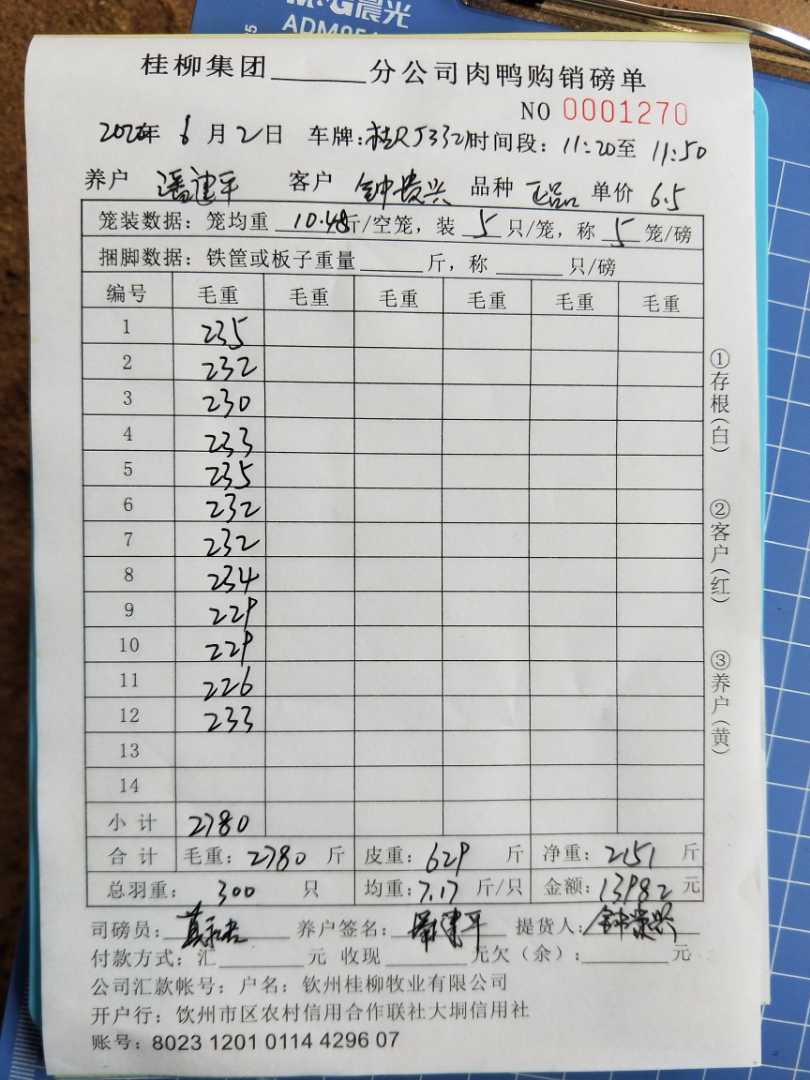 M&G晨光
桂柳集团______分公司肉鸭购销磅单
NO 0001270
6月2日 车牌: 时间段: 11:20至 11:50
养户 潘建平 客户 品种 正品 单价 6.5
笼装数据: 笼均重 10.48斤/空笼, 装 5 只/笼, 称 5 笼/磅
捆脚数据: 铁筐或板子重量______斤, 称______只/磅
编号 毛重 毛重 毛重 毛重 毛重 毛重
1 235
2 232
3 230
4 233
5 235
6 232
7 232
8 234
9 229
10 229
11 226
12 233
13
14
小计 2780
合计 毛重: 2780 斤 皮重: 629 斤 净重: 2151 斤
总羽重: 300 只 均重: 7.17 斤/只 金额: 13982 元
司磅员: 养户签名: 提货人:
付款方式: 汇______元 收现______元欠(余):______元
公司汇款帐号: 户名: 钦州桂柳牧业有限公司
开户行: 饮州市区农村信用合作联社大垌信用社
账号: 8023 1201 0114 4296 07
①存根(白)
②客户(红)
③养户(黄)